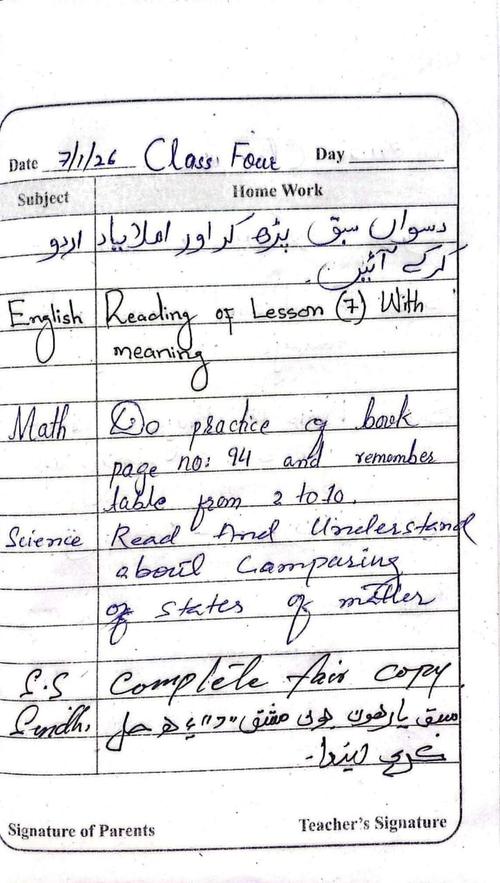 Date 7/1/26 Class Four Day
Subject Home Work
اردو دسواں سبق پڑھ کر اور املا یاد
کرکے آئیں۔
English Reading of Lesson (7) With
meaning
Math Do practice of book
page no: 94 and remember
table from 2 to 10.
Science Read And Understand
about Comparing
of states of matter
S.S Complete fair copy
Sindhi سبق يارهون جي مشق "د" ۾ حل
ڪري ايندا۔
Signature of Parents Teacher's Signature